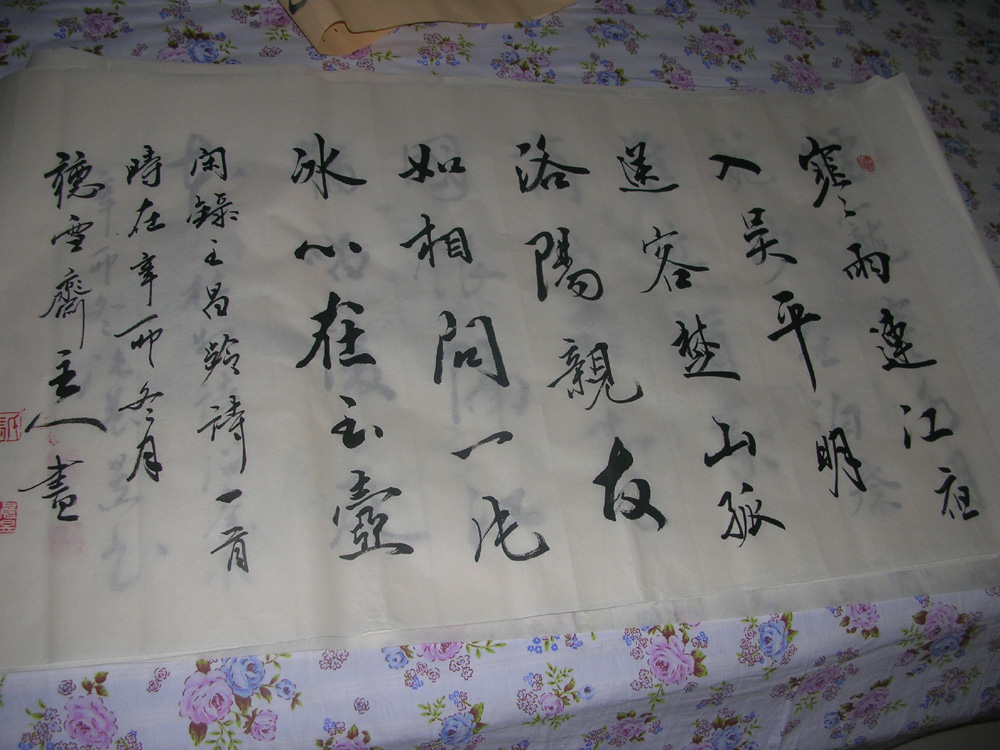 寒雨連江夜
入吴平明
送客楚山孤
洛陽親友
如相問一片
冰心在玉壺
閑錄王昌齡詩一首
時在辛卯冬月
聽雪齋主人書